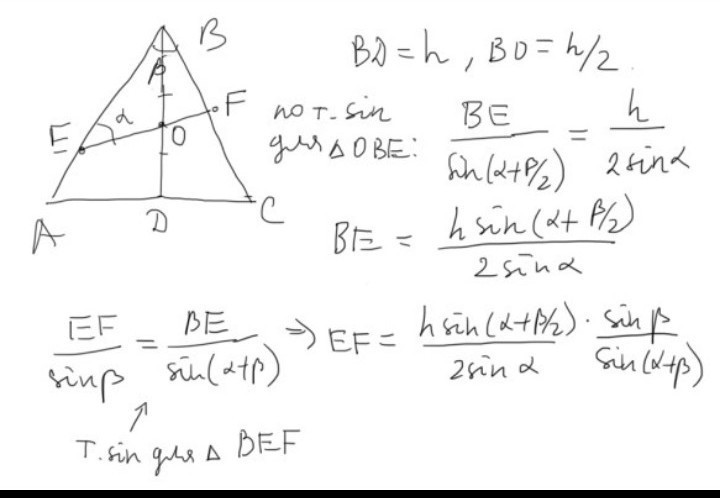 B
β
α
E
F
O
A
D
C
BD = h, BO = h/2.
по т. sin
для △OBE: BE / sin(α+β/2) = h / 2 sin α
BE = h sin(α+β/2) / 2 sin α
EF / sin β = BE / sin(α+β) ⇒ EF = h sin(α+β/2) / 2 sin α · sin β / sin(α+β)
↑
Т. sin для △ BEF